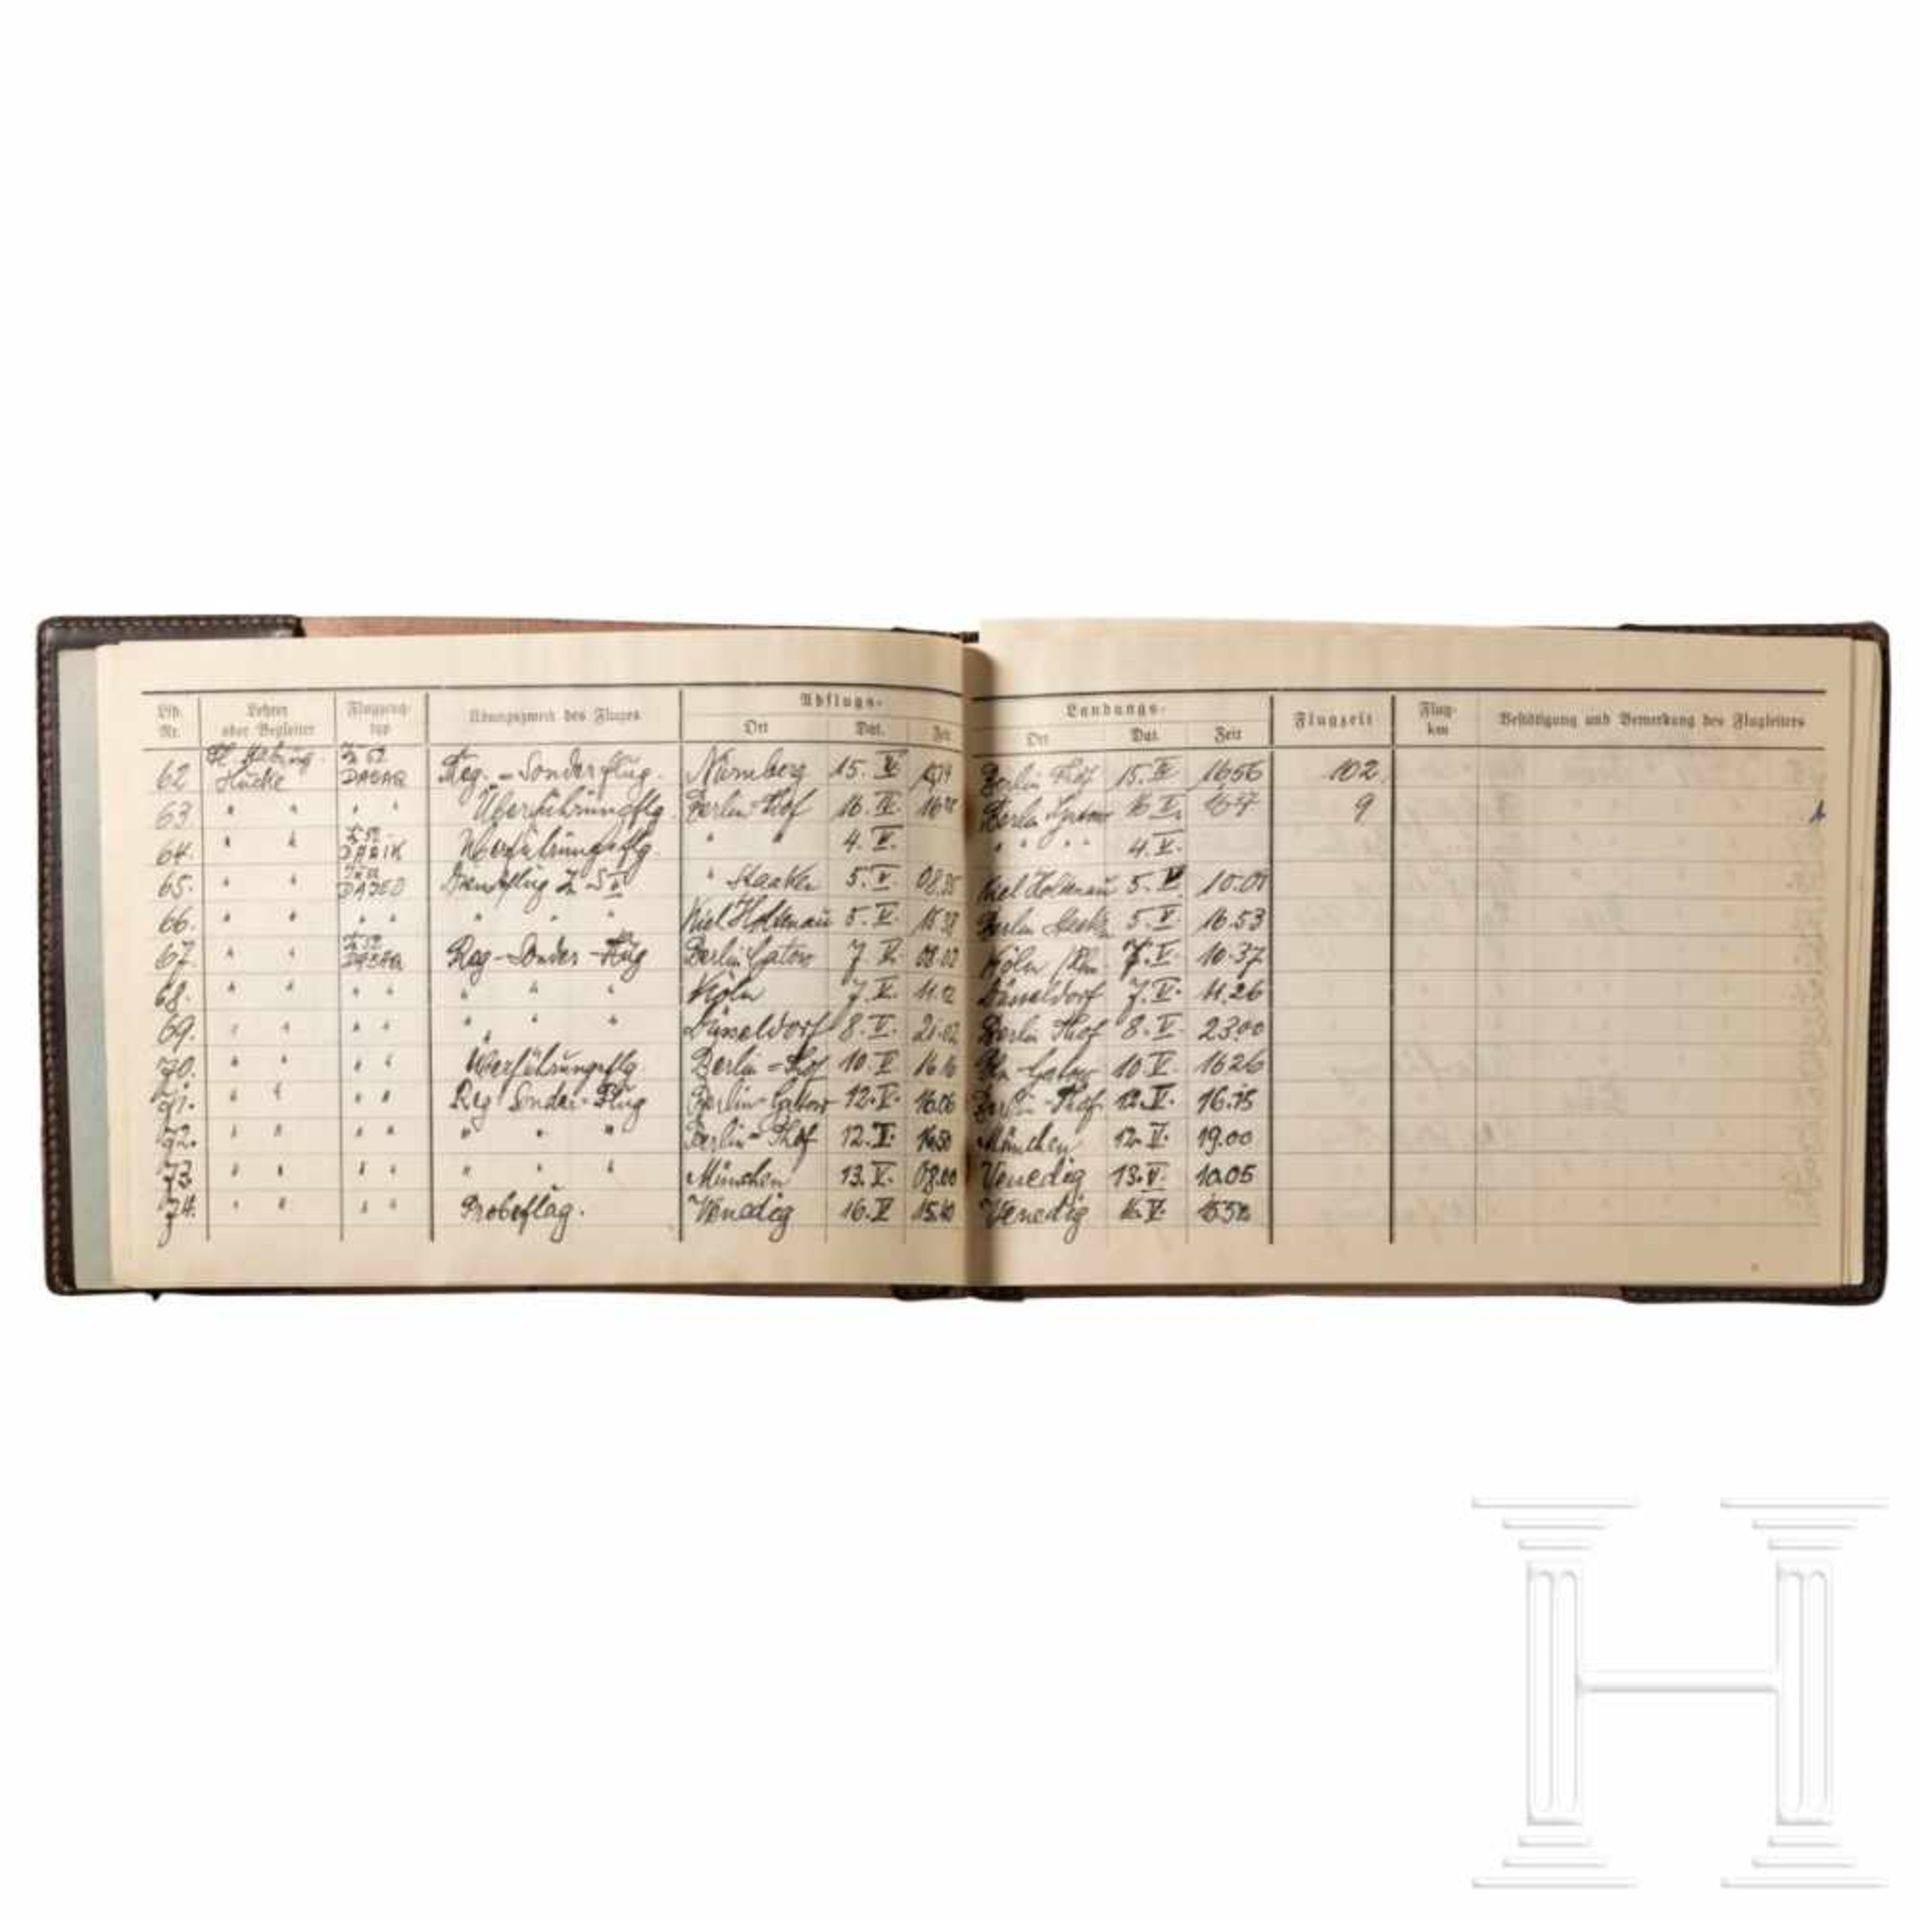 Lfd. Nr. Lehrer oder Begleiter Flugzeug-typ Übungszweck des Fluges Abflugs- Ort Dat. Zeit Landungs- Ort Dat. Zeit Flugzeit Flug-km Bestätigung und Bemerkung des Flugleiters
62 Hucke Reg. - Sonderflug. Nürnberg 15. 15. 1656 102
63. " " " " Überführungsflg. Berlin Thof 16. Berlin 9
64. " " Überführungsflg. " " 4. V. " " " " 4. V.
65. " " DAJEO " Staaken 5. V 08.35 Kiel Holtenau 5. V 10.01
66. " " " " " " " Kiel Holtenau 5. V. 15 33 Berlin 5. V. 16.53
67. " " Reg-Sonder-Flug Berlin Gatow 7 V. 08.02 Köln 7. V. 10.37
68. " " " " " " " Köln 7. V. 11.12 Düsseldorf 7. V. 11.26
69. " " " " " " " Düsseldorf 8. V. 21.02 Berlin Thof 8. V. 23.00
70. " " " " Überführungsflg. Berlin - Thof 10 V 16 16 Bln-Gatow 10 V 16 26
71. " " " " Reg Sonder-Flug Berlin-Gatow 12. V. 16.06 Berlin-Thof 12. V. 16.15
72. " " " " " " " Berlin-Thof 12. V. 16.50 München 12. V. 19.00
73 " " " " " " " München 13. V. 08.00 Venedig 13. V. 10.05
74. " " " " Probeflug. Venedig 16. V 15.10 Venedig 16. V.
H